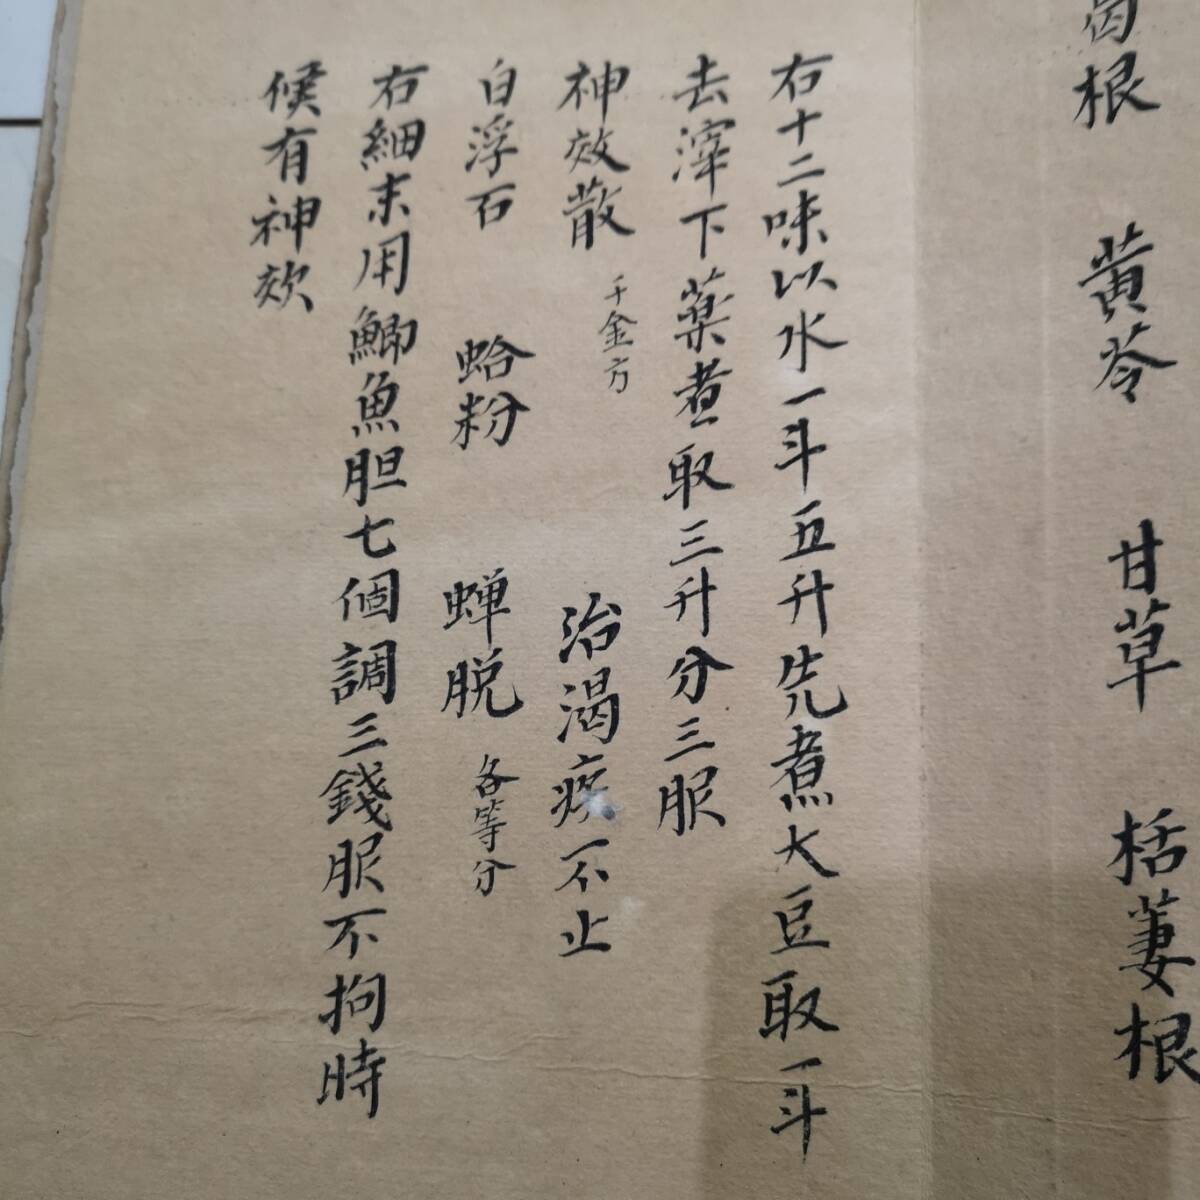 葛根　黄芩　甘草　栝蔞根
右十二味以水一斗五升先煮大豆取一斗
去滓下薬煮取三升分三服
神效散　千金方　治渴疾不止
白浮石　蛤粉　蝉脱　各等分
右細末用鯽魚胆七個調三錢服不拘時
候有神效